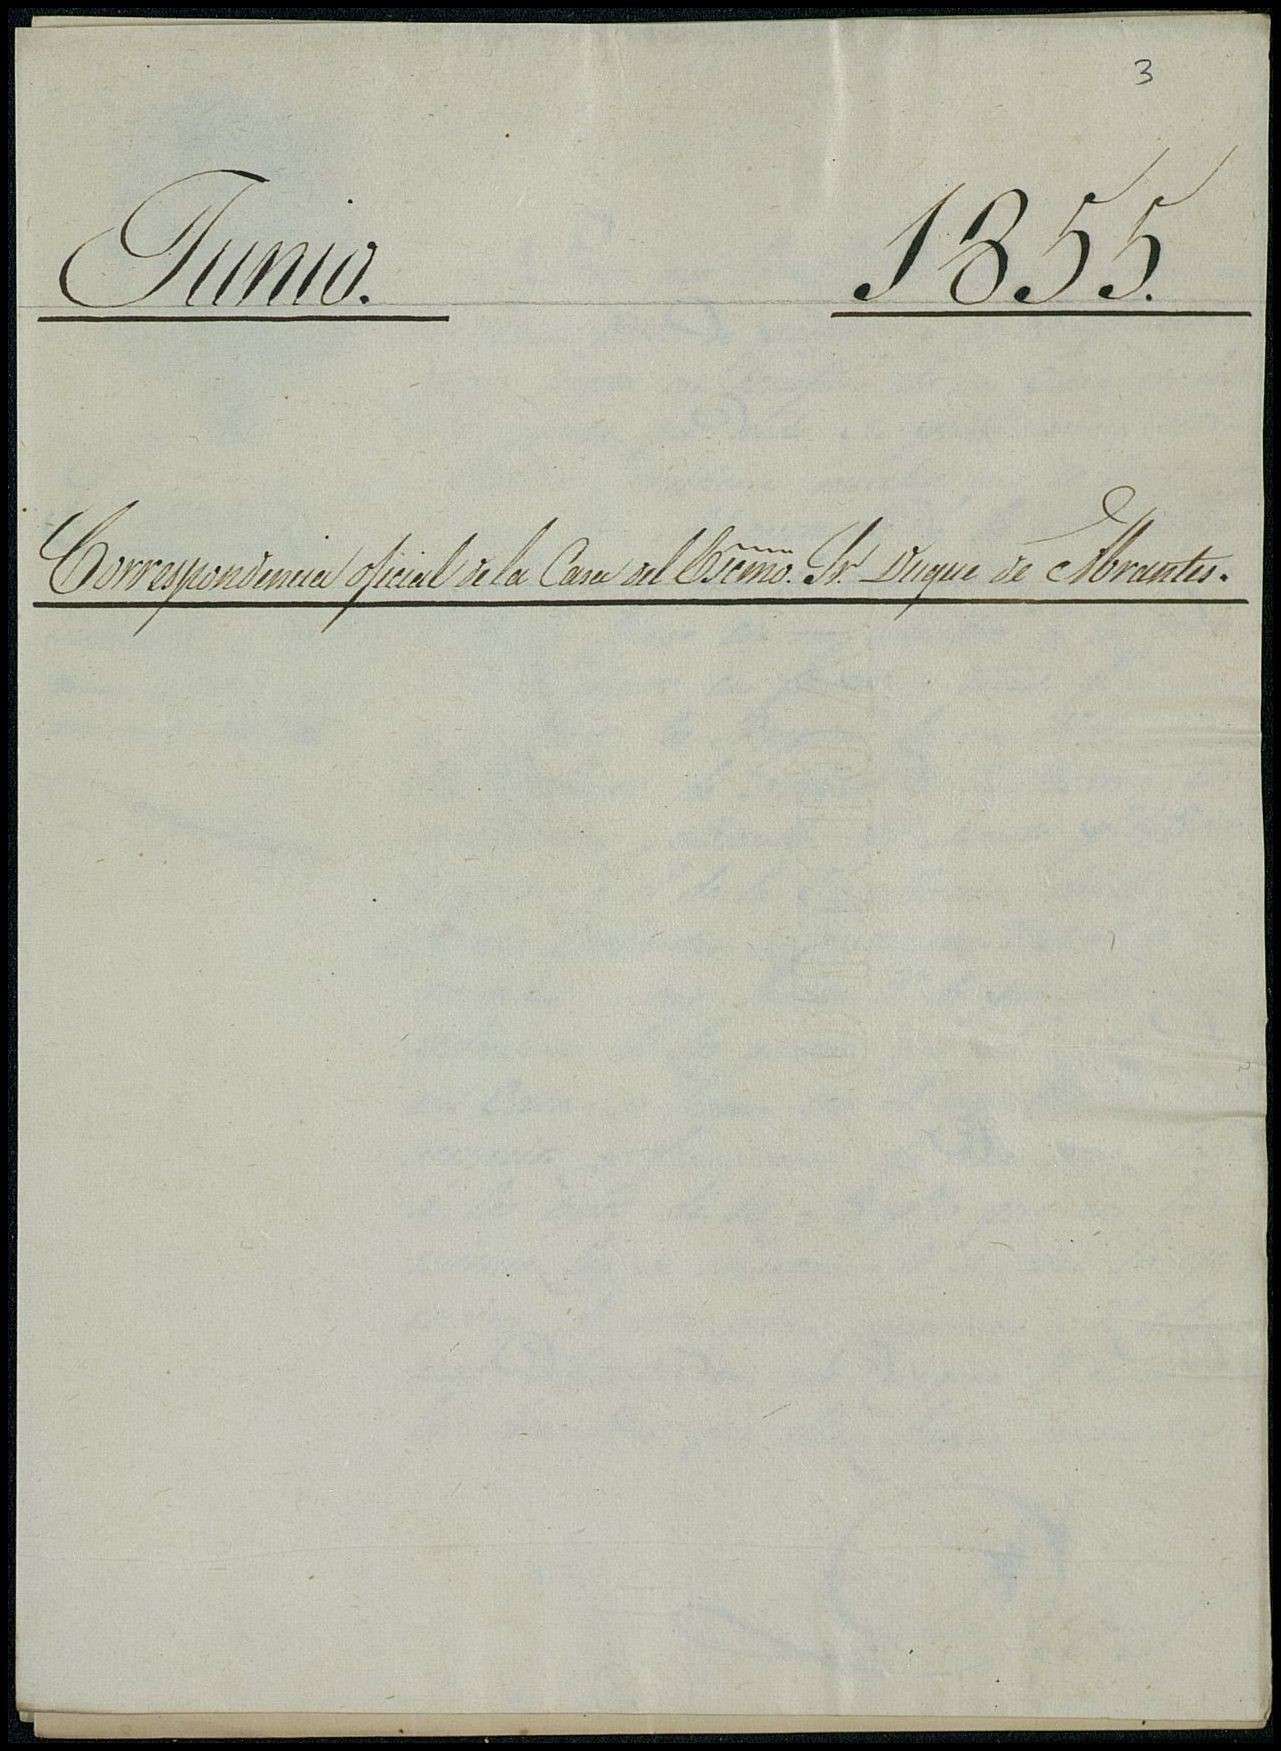 3
Junio. 1855.
Correspondencia oficial de la Casa del Escmo. Sr. Duque de Abrantes.